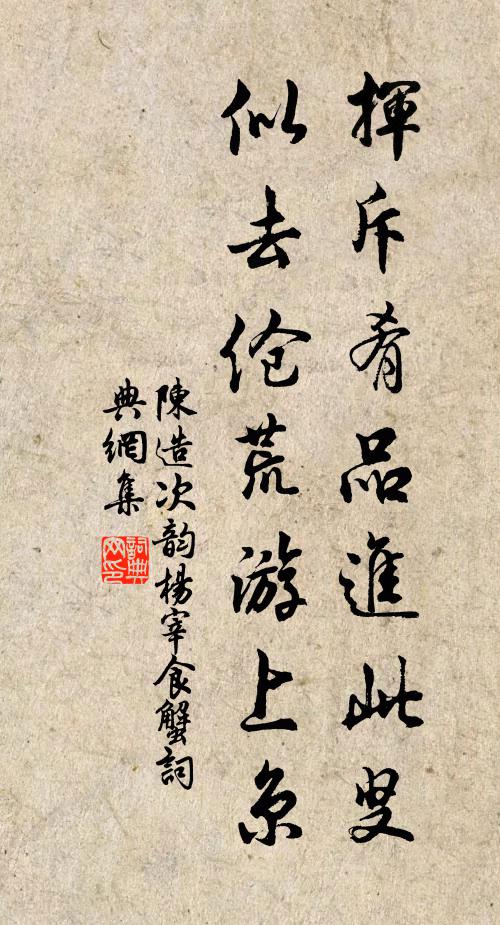 揮斥肴品進此叟
似去伧荒游上京
陳造次韵楊宰食蟹詞
典網集
詞典网印